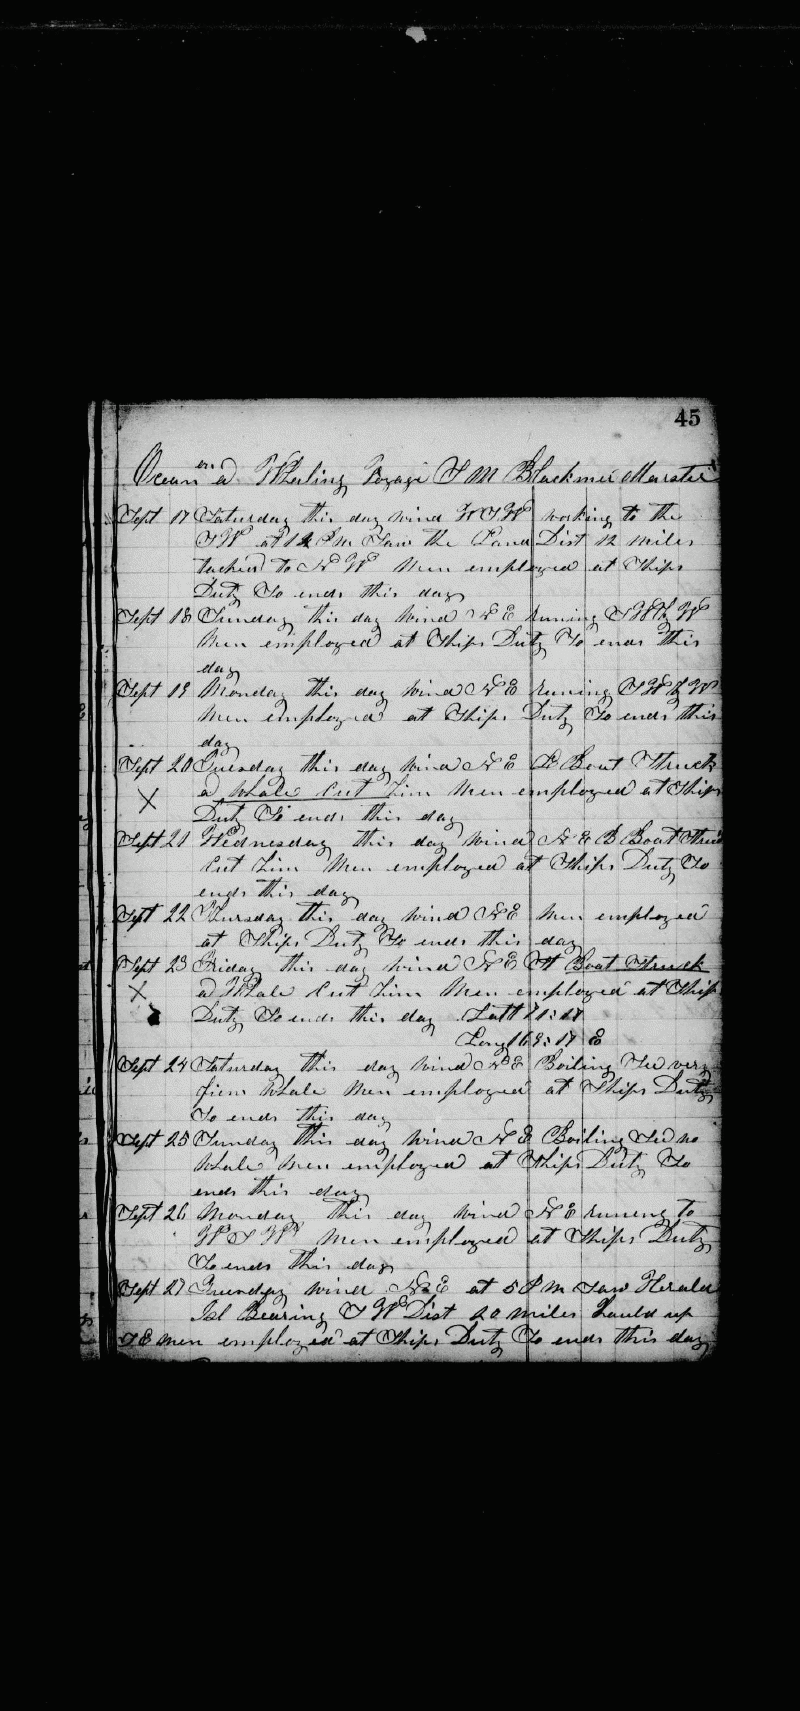 45
Ocean on a Whaling Voyage T M Blackmer Marster
Sept 17 Saturday this day wind W S W working to the
S W at 12 P m Saw the Land Dist 12 miles
tacked to N W Men employed at Ships
Duty So ends this day
Sept 18 Sunday this day Wind N E runing S W by W
Men employed at Ships Duty So ends this
day
Sept 19 Monday this day Wind N E runing S W by W
Men employed at Ships Duty So ends this
day
Sept 20 Tuesday this day wind N E Boat Struck
a Whale Cut him Men employed at Ships
X
Duty So ends this day
Sept 21 Wednesday this day Wind N E B Boat
Cut him Men employed at Ships Duty So
ends this day
Sept 22 Thursday this day Wind N E Men employed
at Ships Duty So ends this day
Sept 23 Friday this day wind N E Boat Struck
X a Whale Cut him Men employed at Ship
Duty So ends this day Latt
Long 169:17 E
Sept 24 Saturday this day Wind N E Boiling
Whale Men employed at Ships Duty
So ends this day
Sept 25 Sunday this day wind N E Boiling no
Whale Men employed at Ships Duty So
ends this day
Sept 26 Monday this day Wind N E runing to
W S W Men employed at Ships Duty
So ends this day
Sept 27 Tuesday wind N E at 5 P m Saw Herald
Isl Bearing S W Dist 20 miles hauld up
S E men employed at Ships Duty So ends this day